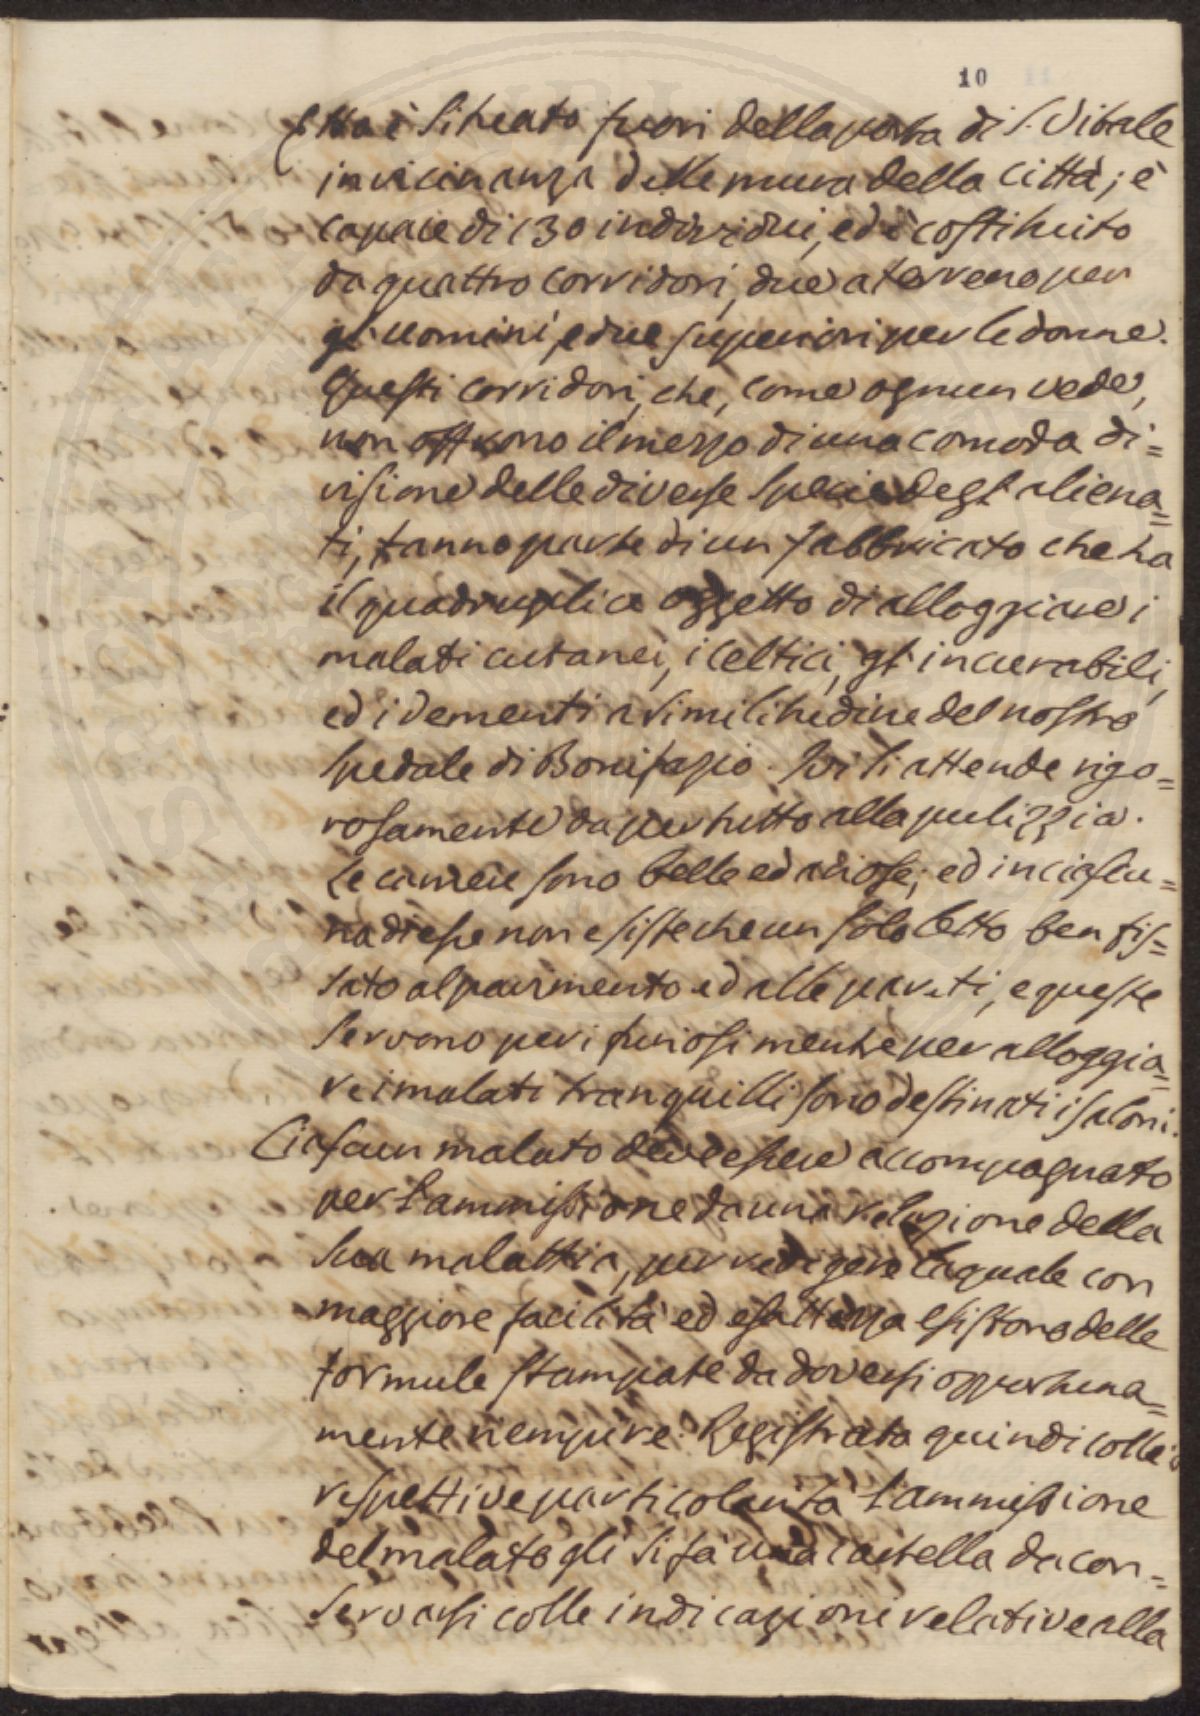 10
Esso è situato fuori della porta di S. Vitale
in vicinanza delle mura della città; è
capace di 130 individui, ed è costituito
da quattro corridori, due a terreno per
gl'uomini, e due superiori per le donne.
Questi corridori, che, come ognun vede,
non offrono il mezzo di una comoda di=
visione delle diverse specie degl'aliena=
ti, fanno parte di un fabbricato che ha
il quadruplice oggetto di alloggiare i
malati cutanei, i celtici, gl'incurabili,
ed i dementi a similitudine del nostro
spedale di Bonifazio. Ivi si attende rigo=
rosamente da per tutto alla pulizzia.
Le camere sono belle ed ariose; ed in ciascu=
na di esse non esiste che un solo letto ben fis=
sato al pavimento ed alle pareti, e queste
servono per i furiosi mentre per alloggia=
re i malati tranquilli sono destinati i saloni.
Ciascun malato deve essere accompagnato
per l'ammissione da una relazione della
sua malattia, per redigere la quale con
maggiore facilità ed esattezza esistono delle
formule stampate da doversi opportuna=
mente riempire. Registrata quindi colle
respettive particolarità l'ammissione
del malato gli si fà una cartella da con=
servarsi colle indicazioni relative alla